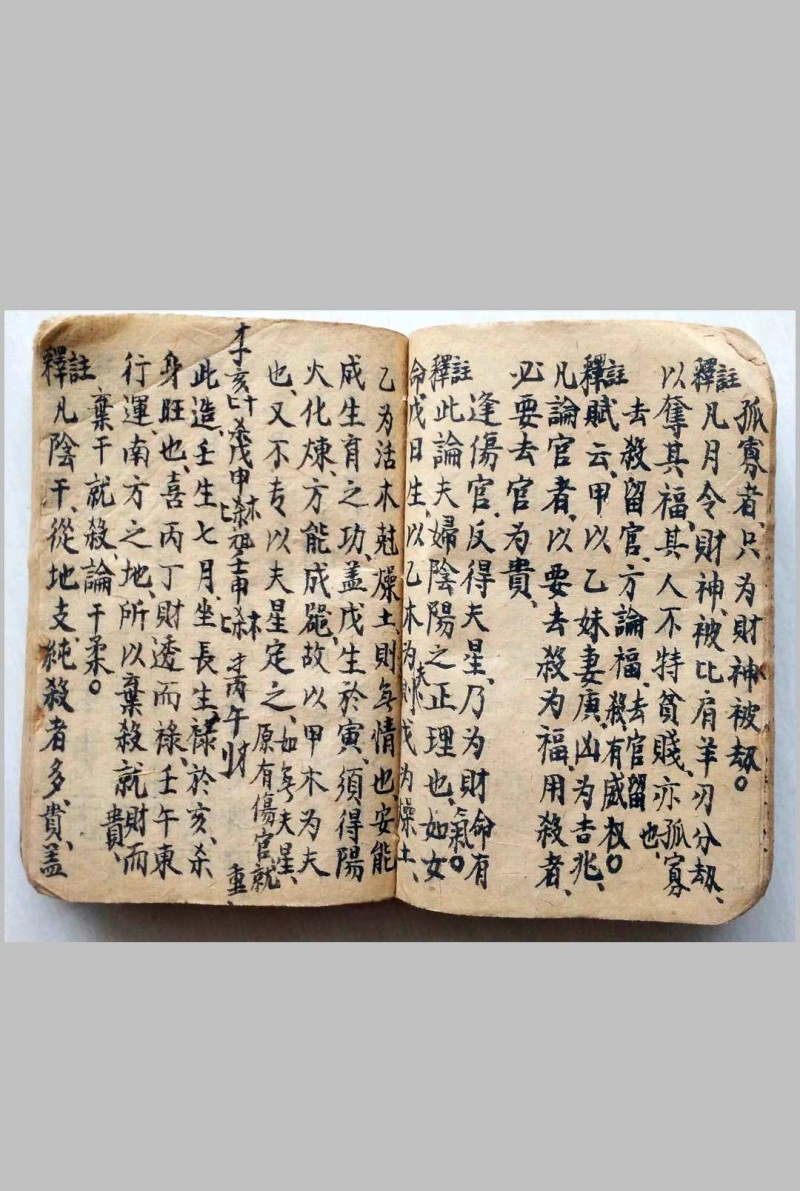 孤寡者、只为財神被刼。
釋註凡月令財神、被比肩羊刃分刼、
以奪其福、其人不特貧賤、亦孤寡也、
去殺留官、方論福、去官留殺、有威权。
釋註賦云、甲以乙妹妻庚、凶为吉兆、
凡論官者、以要去殺为福、用殺者、
必要去官为貴、
逢傷官、反得夫星、乃为財命有氣。
釋註此論夫婦陰陽之正理也、如女
命戊日生、以乙木为夫、則戊为燥土、
乙为活木、尅燥土、則無情也、安能
成生育之功、盖戊生於寅、須得陽
火化煉、方能成器、故以甲木为夫
也、又不专以夫星定之、如無夫星、原有傷官、就
辛亥 杀戊申 元壬申 才丙午財
此造、壬生七月、坐長生、禄於亥、杀重、
身旺也、喜丙丁財透而禄、壬午東
行運南方之地、所以棄殺就財而貴、
棄干就殺、論干柔。
釋註凡陰干、從地支、純殺者多貴、盖